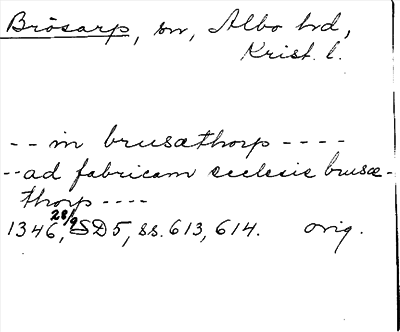 Brösarp, sn, Albo hd,
Krist. l.
-- in brusæthorp ----
--ad fabricam ecclesie brusæ-
thorp ----
1346, 28/9 SD5, ss. 613, 614. orig.